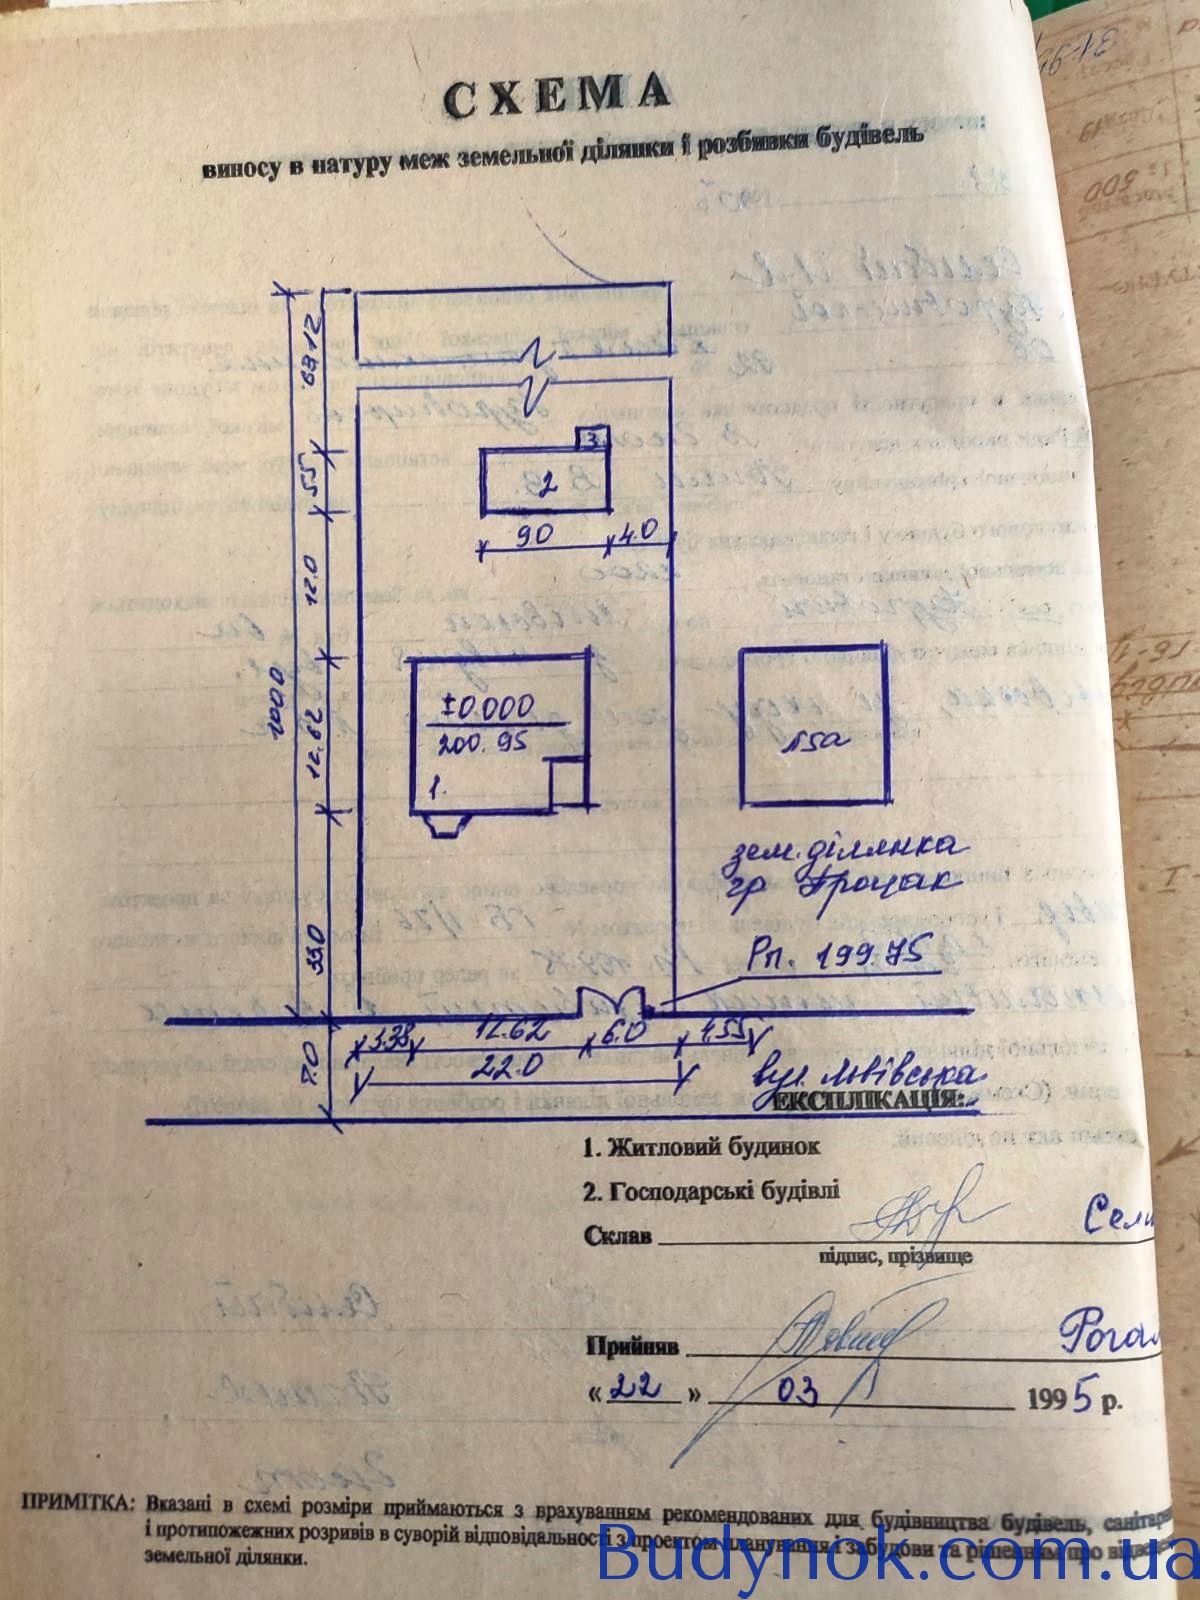 СХЕМА
виносу в натуру меж земельної ділянки і розбивки будівель
3
2
5.5
9.0
4.0
12.0
±0.000
200.95
1.
12.62
15а
зем. ділянка
гр Процак
33.0
Рп. 199.75
3.38
12.62
6.0
4.55
22.0
7.0
вул. Львівська
ЕКСПЛІКАЦІЯ:
1. Житловий будинок
2. Господарські будівлі
Склав
підпис, прізвище
Прийняв
« 22 » 03 1995 р.
ПРИМІТКА: Вказані в схемі розміри приймаються з врахуванням рекомендованих для будівництва будівель,
і протипожежних розривів в суворій відповідальності з проектом планування і забудови та рішенням про
земельної ділянки.
Budynok.com.ua